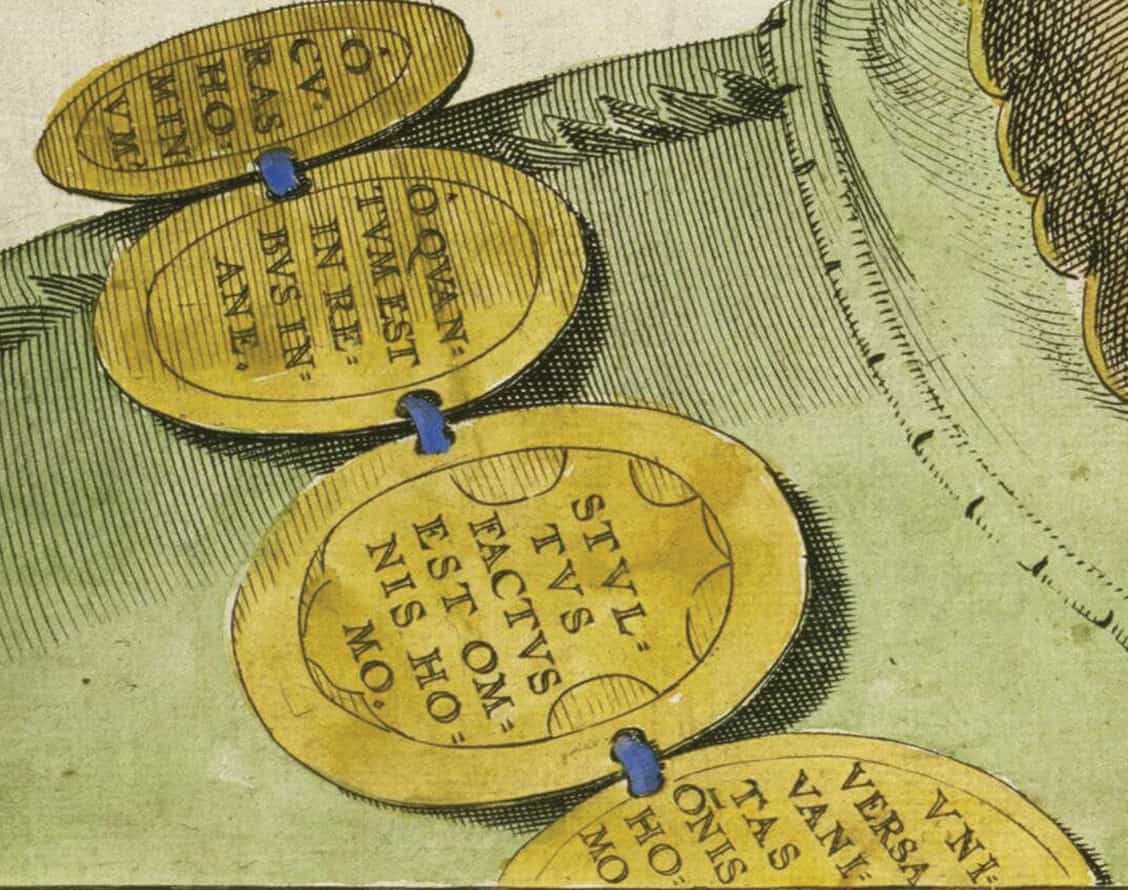 Ó
CV=
RAS
HO=
MIN
VM
Ó QVAN=
TVM EST
IN RE=
BVS IN=
ANE.
STVL=
TVS
FACTVS
EST OM=
NIS HO=
MO.
VNI=
VERSA
VANI=
TAS
ŌNIS
HO=
MO